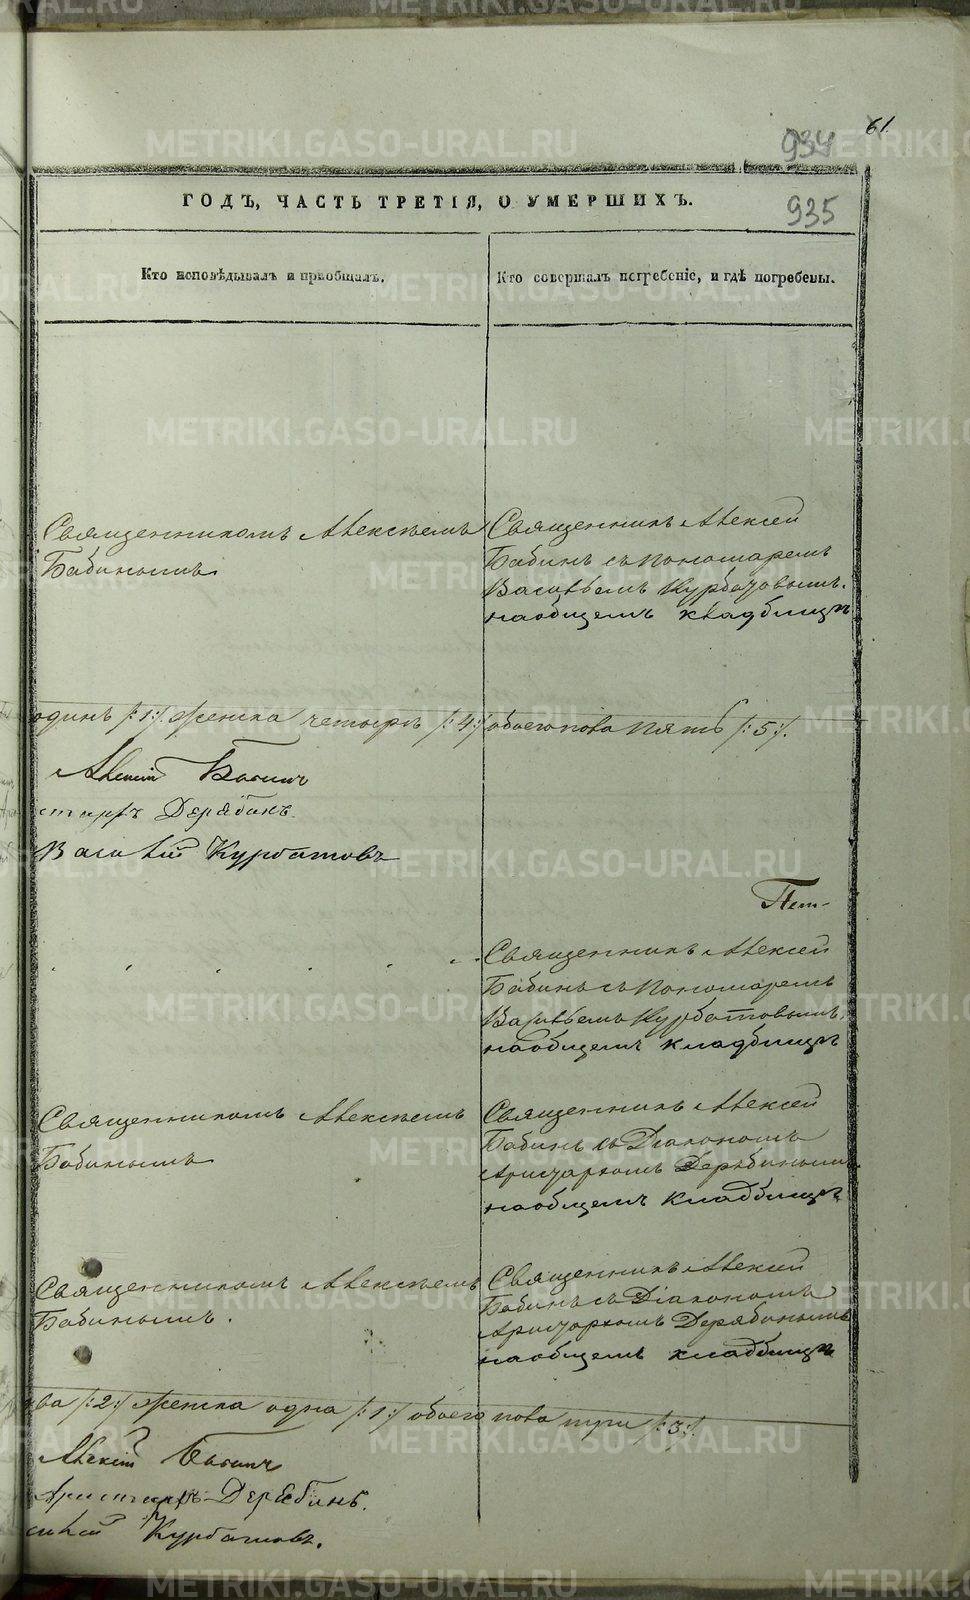 61.
934
ГОДЪ, ЧАСТЬ ТРЕТІЯ, О УМЕРШИХЪ.
935
Кто исповѣдывалъ и пріобщалъ.
Кто совершалъ погребеніе, и гдѣ погребены.
Священникомъ Алексѣемъ
Бабинымъ
Священникъ Алексей
Бабинъ съ пономаремъ
Васильемъ Курбатовымъ.
на общемъ кладбищѣ
одинъ /:1:/. женска четыре /:4:/ обоего пола пять /:5:/.
Алексій Бабинъ
Дерябинъ.
Василій Курбатовъ
Священникъ Алексей
Бабинъ съ пономаремъ
Васильемъ Курбатовымъ.
на общемъ кладбищѣ
Священникомъ Алексѣемъ
Бабинымъ
Священникъ Алексей
Бабинъ съ Діакономъ
Аристархомъ Дерябинымъ
на общемъ кладбищѣ
Священникомъ Алексѣемъ
Бабинымъ.
Священникъ Алексей
Бабинъ съ Діакономъ
Аристархомъ Дерябинымъ
на общемъ кладбищѣ
два /:2:/ женска одна /:1:/ обоего пола три /:3:/.
Алексій Бабинъ
Аристархъ Дерябинъ.
Курбатовъ.
METRIKI.GASO-URAL.RU